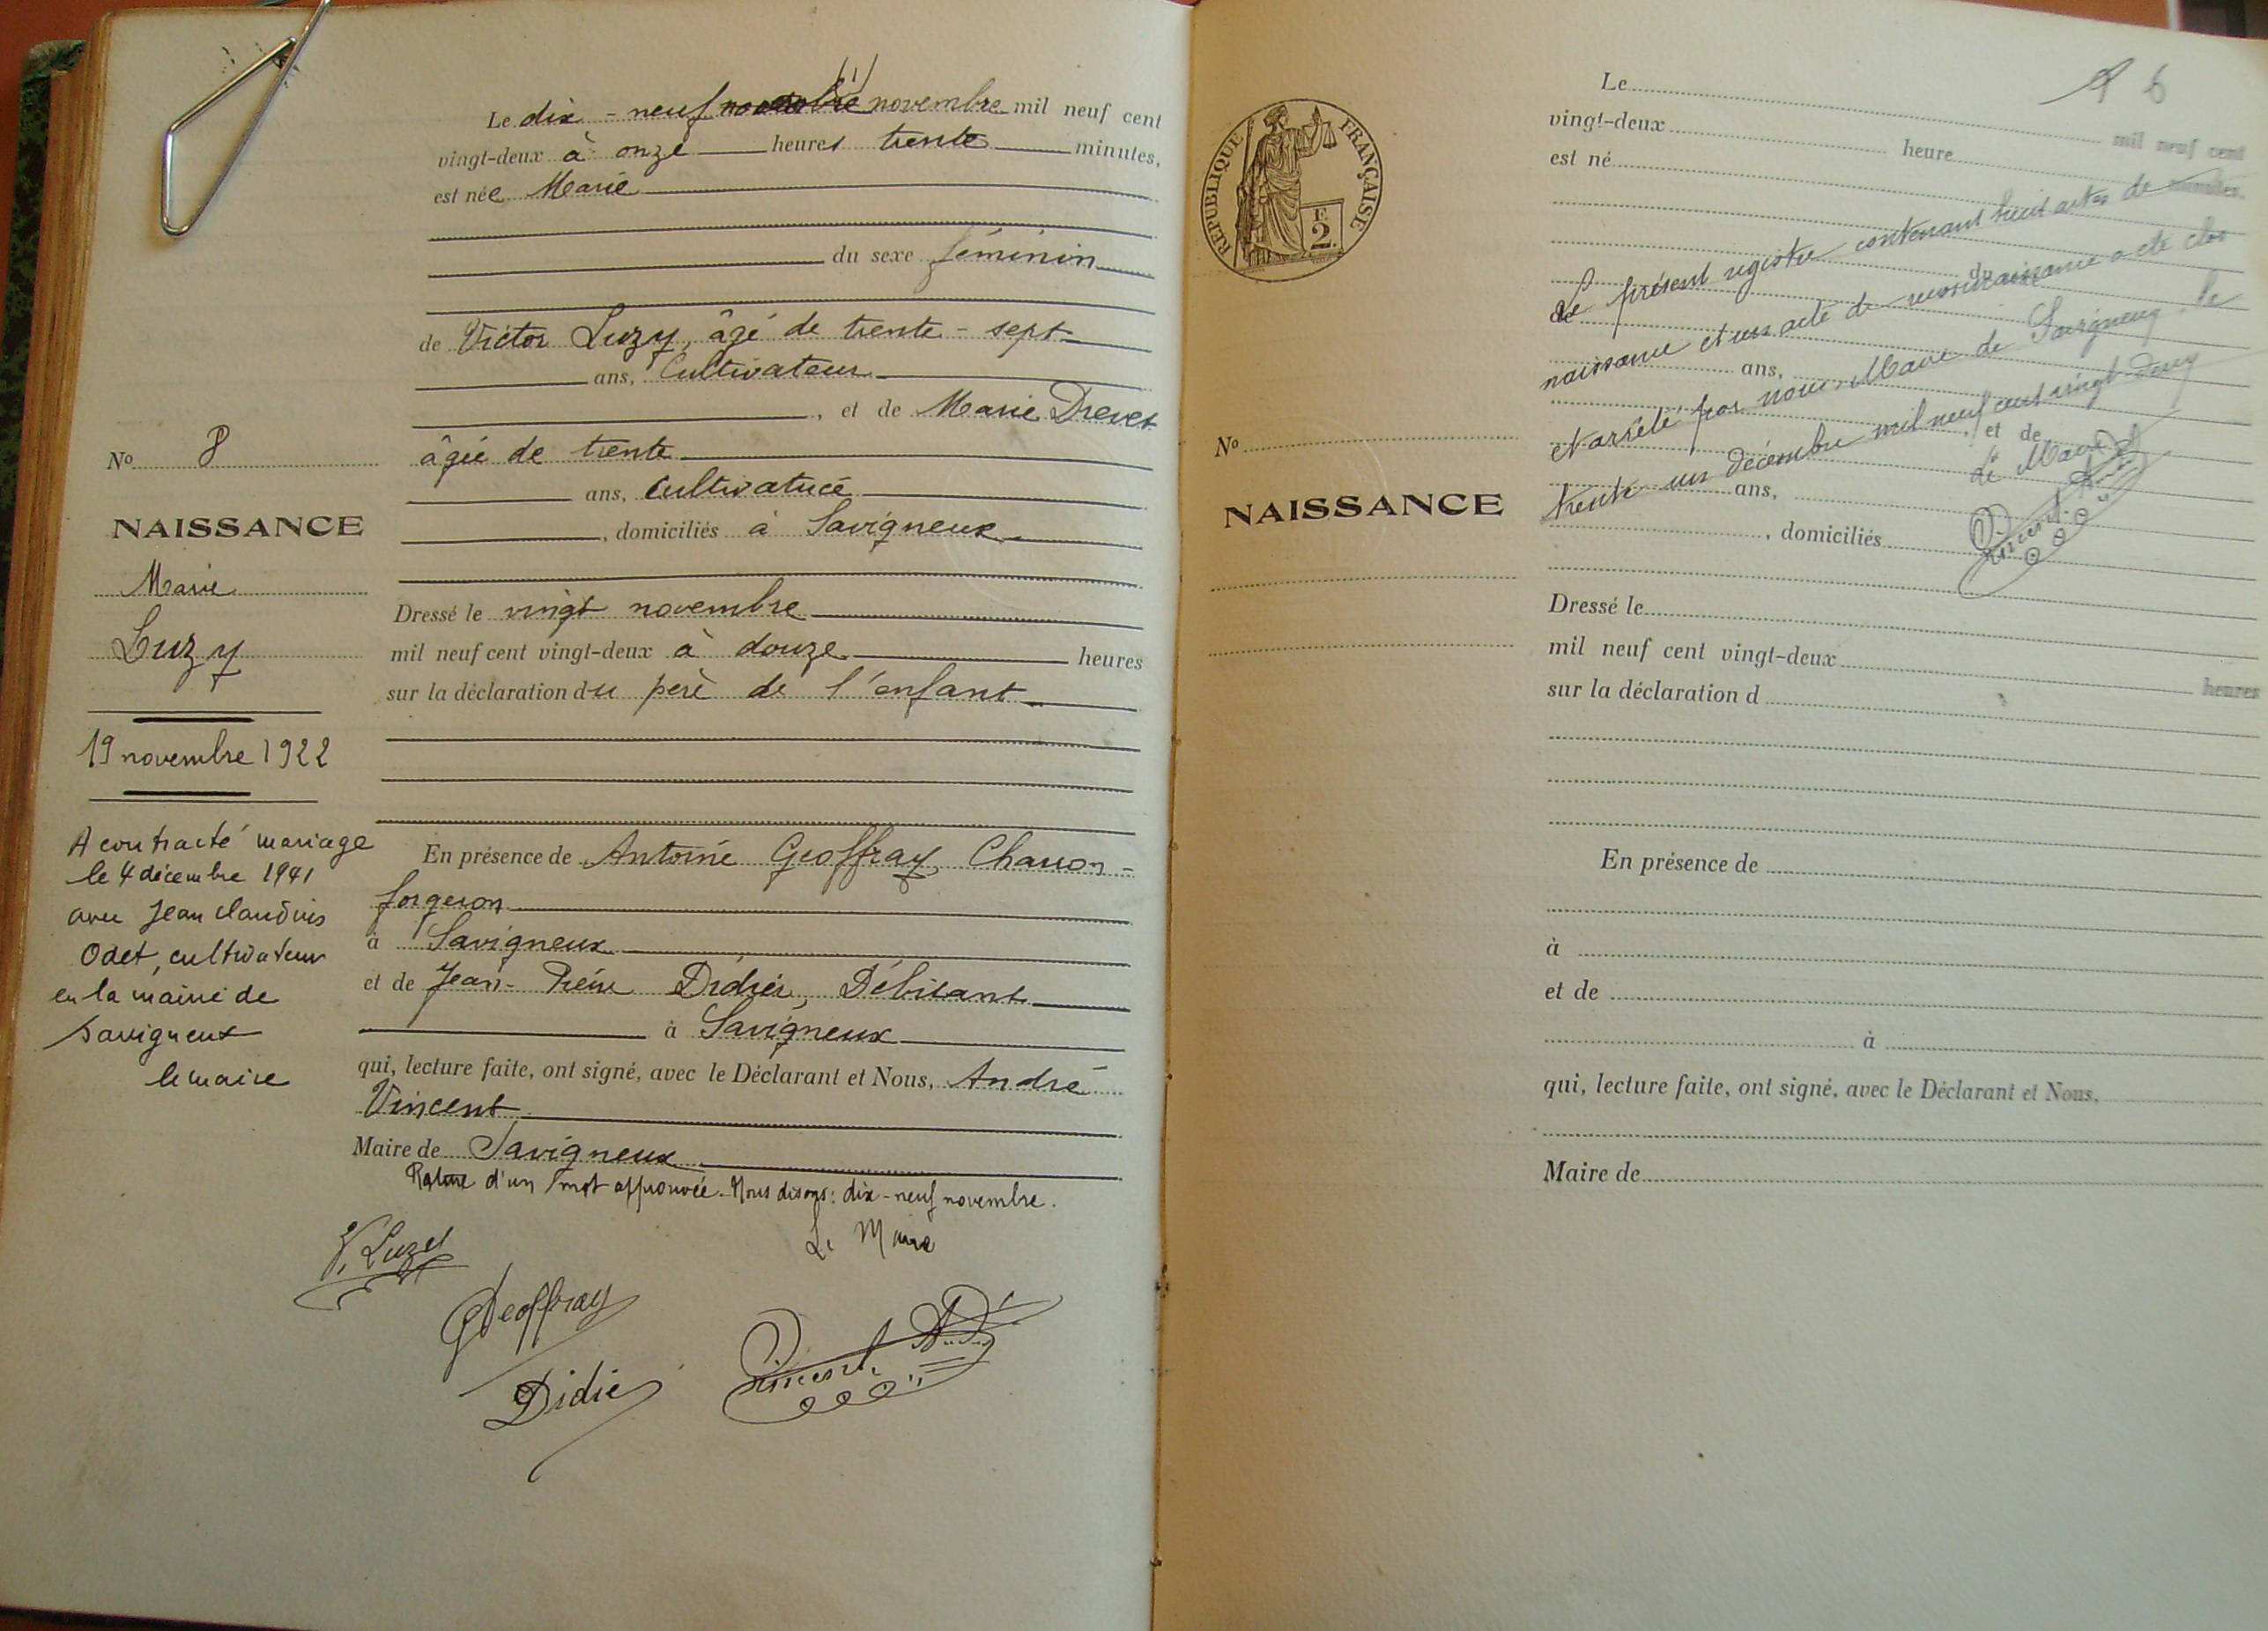 Le dix-neuf novembre mil neuf cent
vingt-deux à onze heures trente minutes,
est née Marie
du sexe féminin
de Victor Luzy, âgé de trente-sept
ans, Cultivateur
, et de Marie Drevet
âgée de trente
ans, cultivatrice
, domiciliés à Savigneux
Dressé le vingt novembre
mil neuf cent vingt-deux à douze heures
sur la déclaration du père de l'enfant
En présence de Antoine Geoffray, Charron-
forgeron
à Savigneux
et de Jean-Pierre Didier, Débitant
à Savigneux
qui, lecture faite, ont signé, avec le Déclarant et Nous, André
Vincent
Maire de Savigneux
Rature d'un mot approuvée. Nous disons : dix-neuf novembre.
Le Maire
V. Luzy
Geoffray
Didier
Vincent
No 8
NAISSANCE
Marie
Luzy
19 novembre 1922
A contracté mariage
le 4 décembre 1941
avec Jean Claudius
Odet, cultivateur
en la mairie de
Savigneux
le maire
REPUBLIQUE FRANÇAISE
F.
2.
No
NAISSANCE
6
Le mil neuf cent
vingt-deux heure minutes.
est né
du sexe
de
ans,
, et de
ans,
, domiciliés
Le présent registre contenant huit actes de
naissance et un acte de reconnaissance a été clos
et arrêté par nous, Maire de Savigneux, le
trente un décembre mil neuf cent vingt-deux
Le Maire
Vincent
Dressé le
mil neuf cent vingt-deux heures
sur la déclaration d
En présence de
à
et de
à
qui, lecture faite, ont signé, avec le Déclarant et Nous,
Maire de